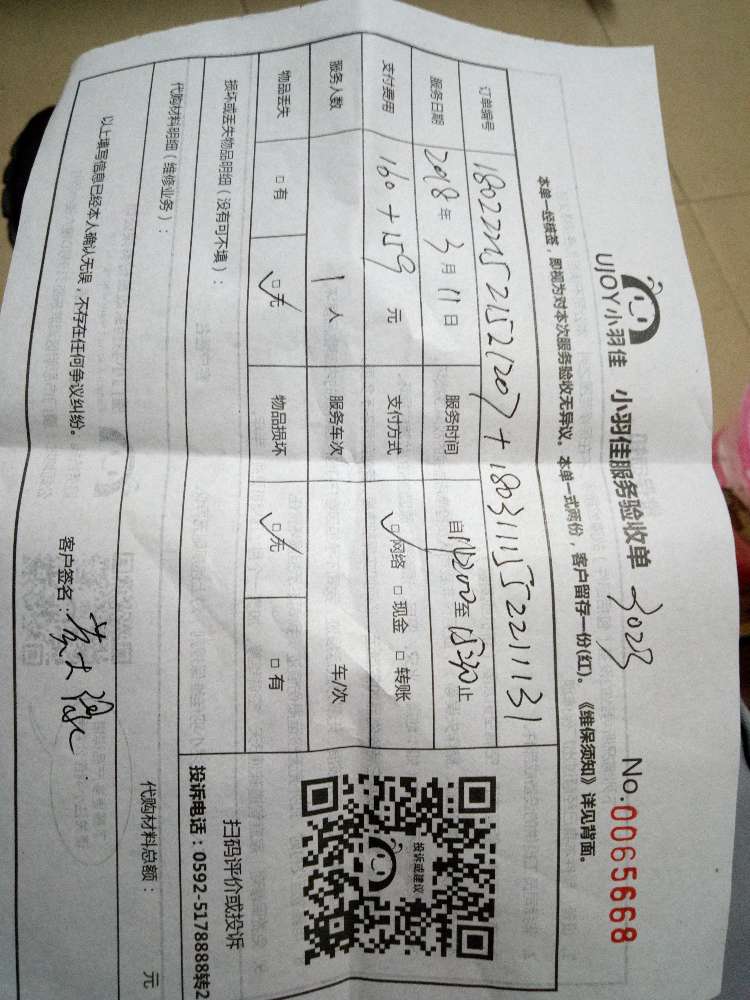 UJOY小羽佳 小羽佳服务验收单 3023 No.0065668
本单一经核签，则视为对本次服务验收无异议。本单一式两份，客户留存一份(红)。《维保须知》详见背面。
订单编号 1802221521521207+1803111552211131
服务日期 2018年3月11日 服务时间 自14200至1530止
支付费用 160+159元 支付方式 □网络 □现金 □转账
服务人数 1人 服务车次 车/次
物品丢失 □有 □无 物品损坏 □无 □有
损坏或丢失物品明细（没有可不填）：
代购材料明细（维修业务）：
代购材料总额： 元
投诉或建议
扫码评价或投诉
投诉电话：0592-5178888转2
以上填写信息已经本人确认无误，不存在任何争议纠纷。
客户签名：